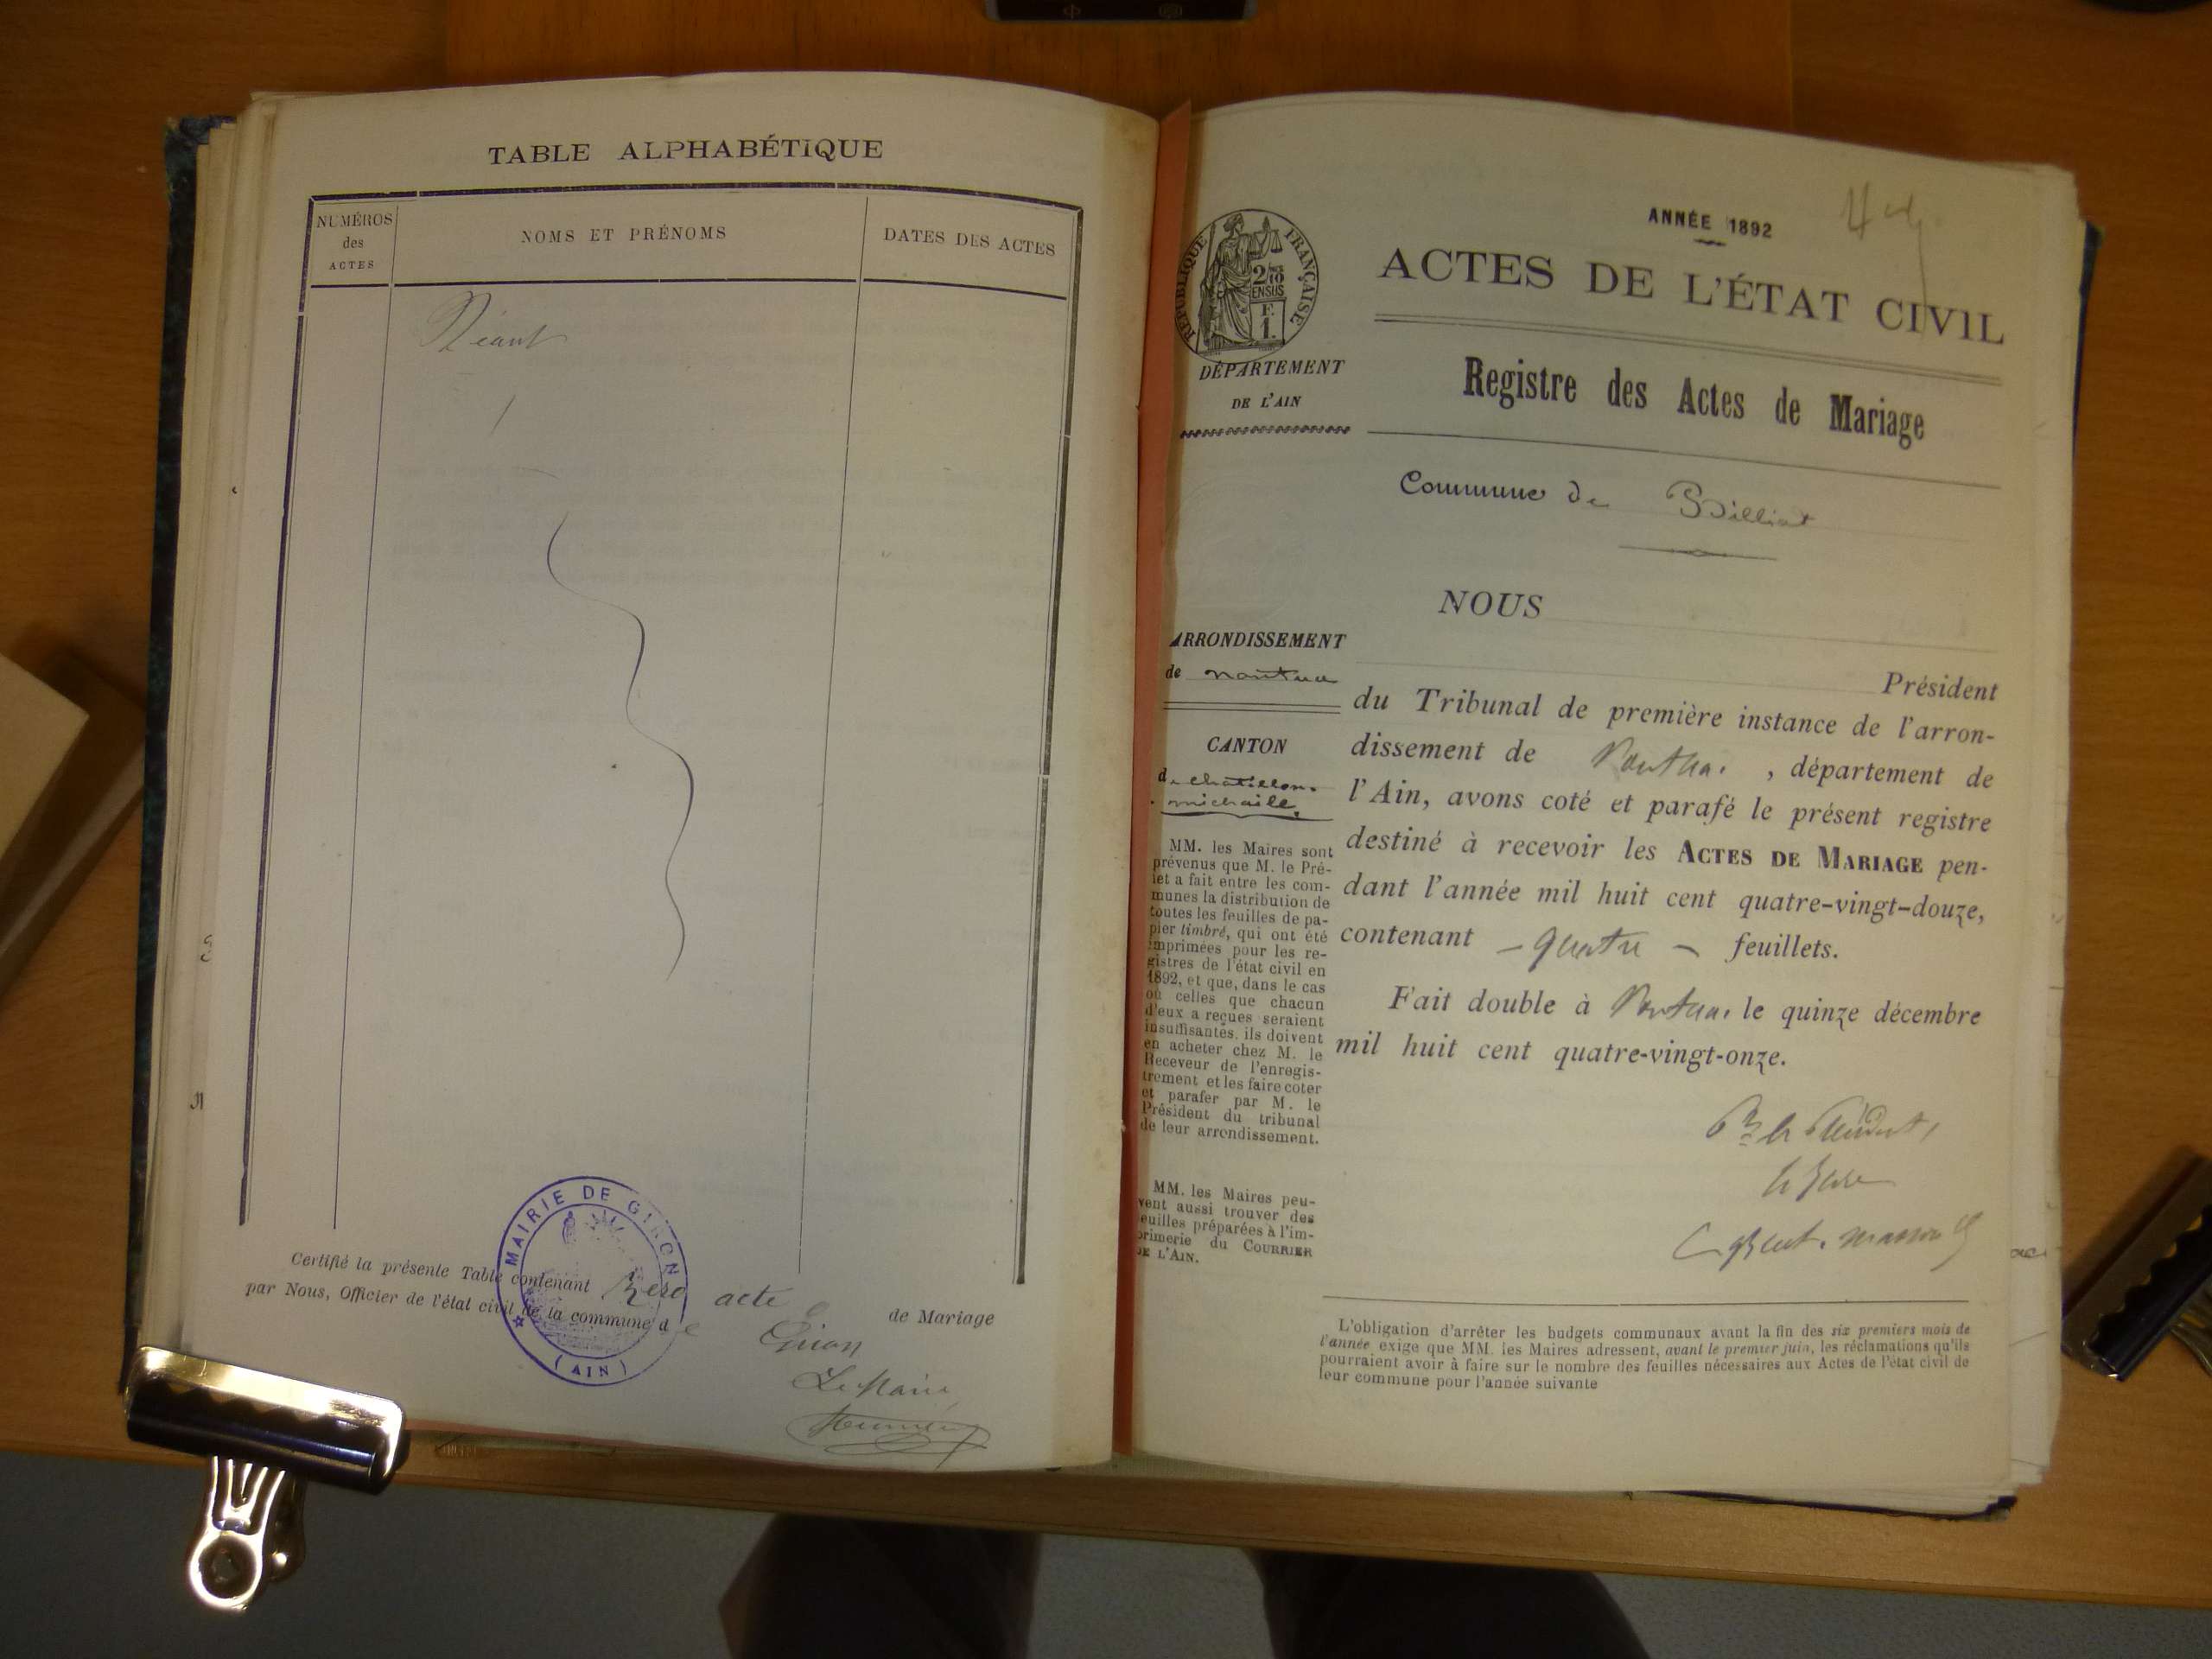 TABLE ALPHABÉTIQUE
NUMÉROS
des
ACTES
NOMS ET PRÉNOMS
DATES DES ACTES
Néant
MAIRIE DE GIRON
(AIN)
Certifié la présente Table contenant zéro acte de Mariage
par Nous, Officier de l'état civil de la commune de Giron
Le Maire,
ANNÉE 1892
ACTES DE L'ÉTAT CIVIL
RÉPUBLIQUE FRANÇAISE
2/10
EN SUS
F.
1.
DÉPARTEMENT
DE L'AIN
Registre des Actes de Mariage
Commune de Billiat
ARRONDISSEMENT
de nantua
CANTON
de chatillon-
michaille
MM. les Maires sont
prévenus que M. le Pré-
fet a fait entre les com-
munes la distribution de
toutes les feuilles de pa-
pier timbré, qui ont été
imprimées pour les re-
gistres de l'état civil en
1892, et que, dans le cas
où celles que chacun
d'eux a reçues seraient
insuffisantes, ils doivent
en acheter chez M. le
Receveur de l'enregis-
trement et les faire coter
et parafer par M. le
Président du tribunal
de leur arrondissement.
MM. les Maires peu-
vent aussi trouver des
feuilles préparées à l'im-
primerie du COURRIER
DE L'AIN.
NOUS
Président
du Tribunal de première instance de l'arron-
dissement de Nantua, département de
l'Ain, avons coté et parafé le présent registre
destiné à recevoir les ACTES DE MARIAGE pen-
dant l'année mil huit cent quatre-vingt-douze,
contenant - quatre - feuillets.
Fait double à Nantua, le quinze décembre
mil huit cent quatre-vingt-onze.
Pr le Président,
le Juge
L'obligation d'arrêter les budgets communaux avant la fin des six premiers mois de
l'année exige que MM. les Maires adressent, avant le premier juin, les réclamations qu'ils
pourraient avoir à faire sur le nombre des feuilles nécessaires aux Actes de l'état civil de
leur commune pour l'année suivante